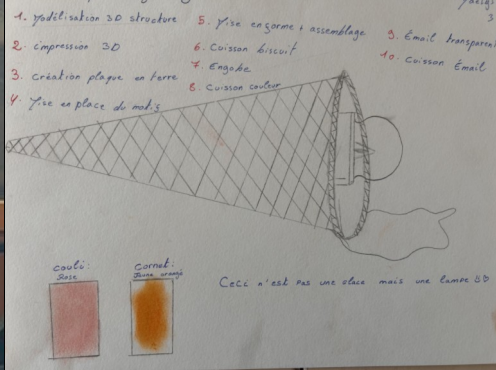 1. Modélisation 3D structure
2. impression 3D
3. création plaque en terre
4. Mise en place du motif
5. Mise en forme + assemblage
6. Cuisson biscuit
7. Engobe
8. Cuisson couleur
3
9. Émail transparent
10. Cuisson Émail
couli:
Rose
cornet:
Jaune orangé
Ceci n'est pas une glace mais une lampe